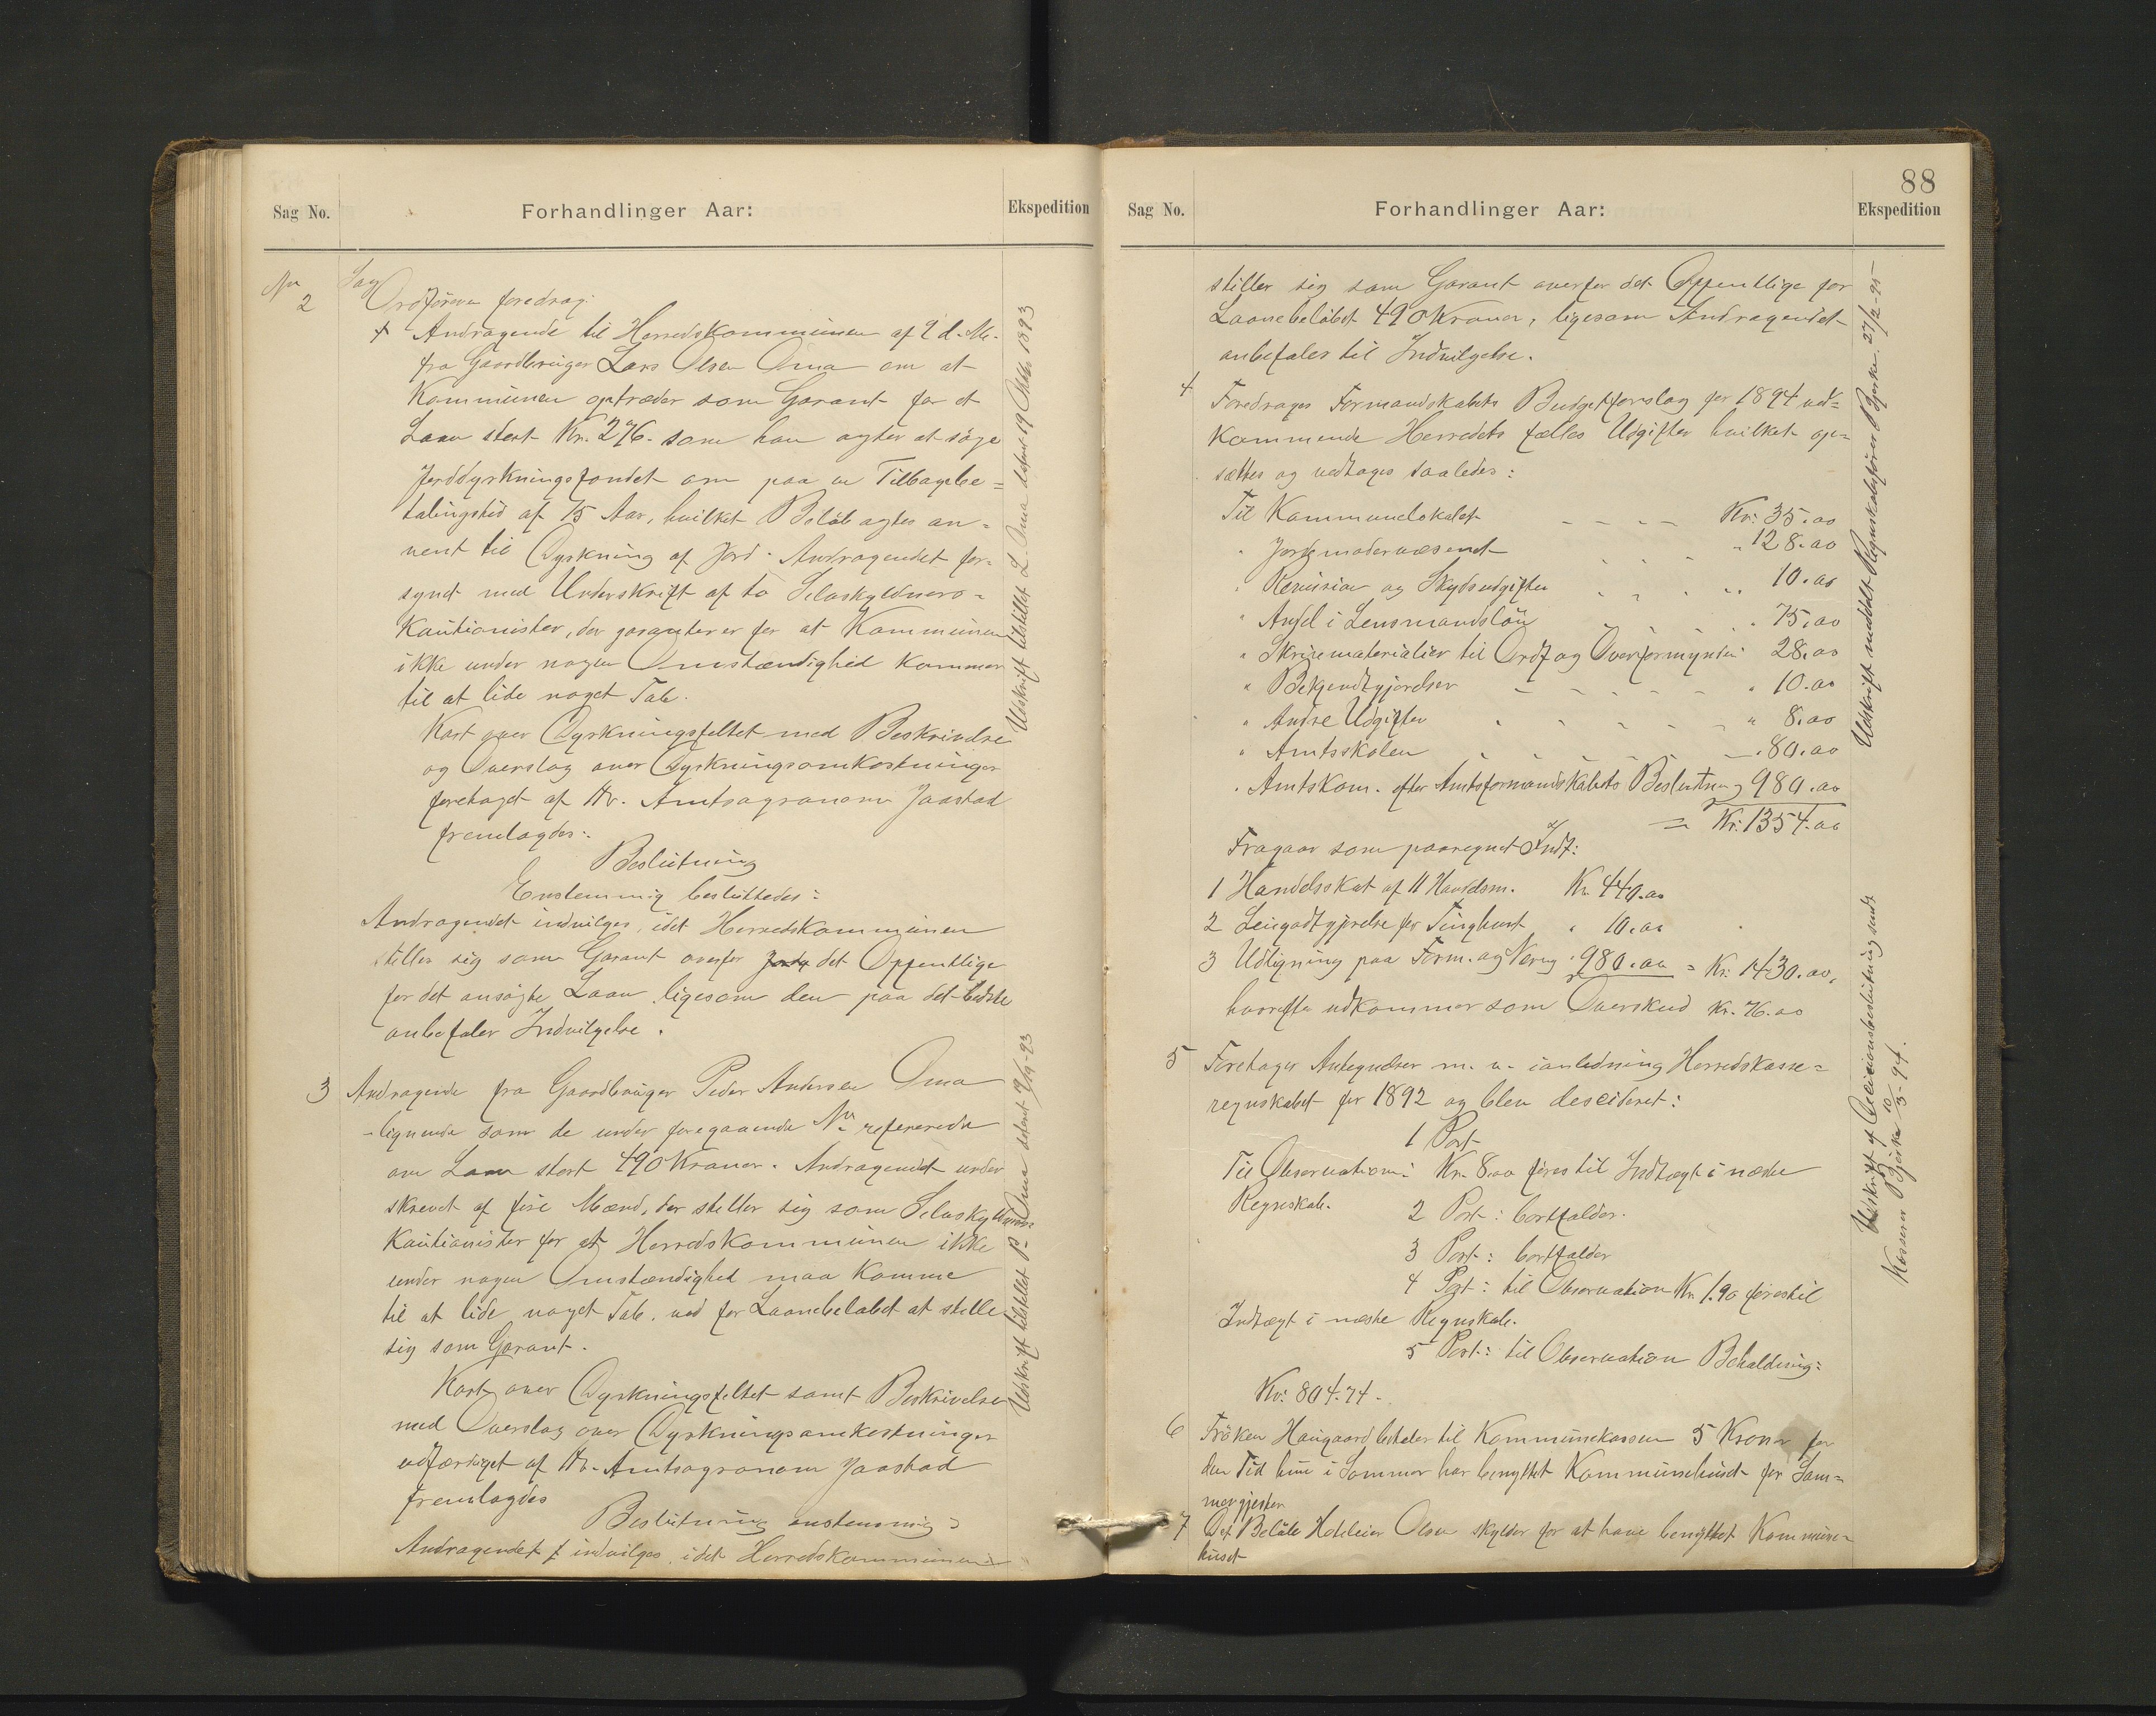 Sag No.
Forhandlinger Aar:
Ekspedition
No Sag
2 Ordføreren foredrag:
Andragende til Herredskommunen af 9 d. M.
fra Gaardbruger Lars Olsen Oma om at
Kommunen optræder som Garant for et
Laan stort Kr. 276. som han agter at søge
Jorddyrkningsfondet om paa en Tilbagebe=
talingstid af 15 Aar, hvilket Beløb agtes an=
vent til Dyrkning af Jord. Andragendet for=
synet med Underskrift af to Selvskyldners=
Kautionister, der garanterer for at Kommunen
ikke under nogen Omstændighed kommer
til at lide noget Tab.
Kart over Dyrkningsfeltet med Beskrivelse
og Overslag over Dyrkningsomkostninger
foretaget af Hr. Amtsagronom Jaastad
fremlagdes:
Beslutning
Enstemmig besluttedes:
Andragendet indvilges, idet Herredskommunen
stiller sig som Garant overfor det Offentlige
for det ansøgte Laan ligesom den paa det bedste
anbefaler Indvilgelse.
Udskrift tilstillet L. Oma datert 19 Oktbr 1893
3 Andragende fra Gaardbruger Peder Andersen Oma
-lignende som de under foregaaende No refererede
om Laan stort 490 Kroner. Andragendet under
skrevet af fire Mænd, der stiller sig som Selvskyldners
Kautionister for at Herredskommunen ikke
under nogen Omstændighed maa komme
til at lide noget Tab, ved for Laanebeløbet at stille
sig som Garant.
Kart over Dyrkningsfeltet samt Beskrivelse
med Overslag over Dyrkningsomkostninger
udfærdiget af Hr. Amtsagronom Jaastad
fremlagdes
Beslutning enstemmig:
Andragendet indvilges, idet Herredskommunen
Udskrift tilstillet P. Oma datert 19/10-93
88
Sag No.
Forhandlinger Aar:
Ekspedition
stiller sig som Garant overfor det Offentlige for
Laanebeløbet 490 Kroner, ligesom Andragendet
anbefales til Indvilgelse.
4 Foredrages Formandskabets Budgetforslag for 1894 ved=
kommende Herredets fælles Udgifter hvilket op=
sættes og vedtages saaledes:
Til Kommunelokalet Kr. 35.00
" Jordemodervæsenet " 128.00
" Revision og Skydsudgifter " 10.00
" Andel i Lensmandsløn " 75.00
" Skrivematerialier til Ordf og Overformynderi 28.00
" Bekjendtgjørelser " 10.00
" Andre Udgifter " 8.00
" Amtsskolen 80.00
" Amtskom. efter Amtsformandskabets Beslutning 980.00
= Kr. 1354.00
Fragaar som paaregnet Indt:
1 Handelsskat af 11 Handelsm. Kr. 440.00
2 Leiegodtgjørelse for Tinghuset " 10.00
3 Udligning paa Form. og Næring " 980.00 = Kr. 1430.00,
hvorefter udkommer som Overskud Kr. 76.00
Udskrift meddelt Regnskabsfører Bjerke. 27/2-95
5 Foretages Antegnelser m. v. i anledning Herredskasse=
regnskabet for 1892 og blev desideret:
1 Post
Til Observation: Kr. 8.00 føres til Indtægt i næste
Regnskab.
2 Post: bortfalder.
3 Post: bortfalder
4 Post: til Observation Kr 1.90 føres til
Indtægt i næste Regnskab.
5 Post: til Observation Beholdning:
Kr. 804.74.
Udskrift af Decisionsbeslutning sendt
Kasserer Bjerke 10/3-94.
6 Frøken Haugaard betaler til Kommunekassen 5 Kroner for
den Tid hun i Sommer har benyttet Kommunehuset for Som=
mergjester
7 Det Beløb Olsen skylder for at have benyttet Kommune=
huset